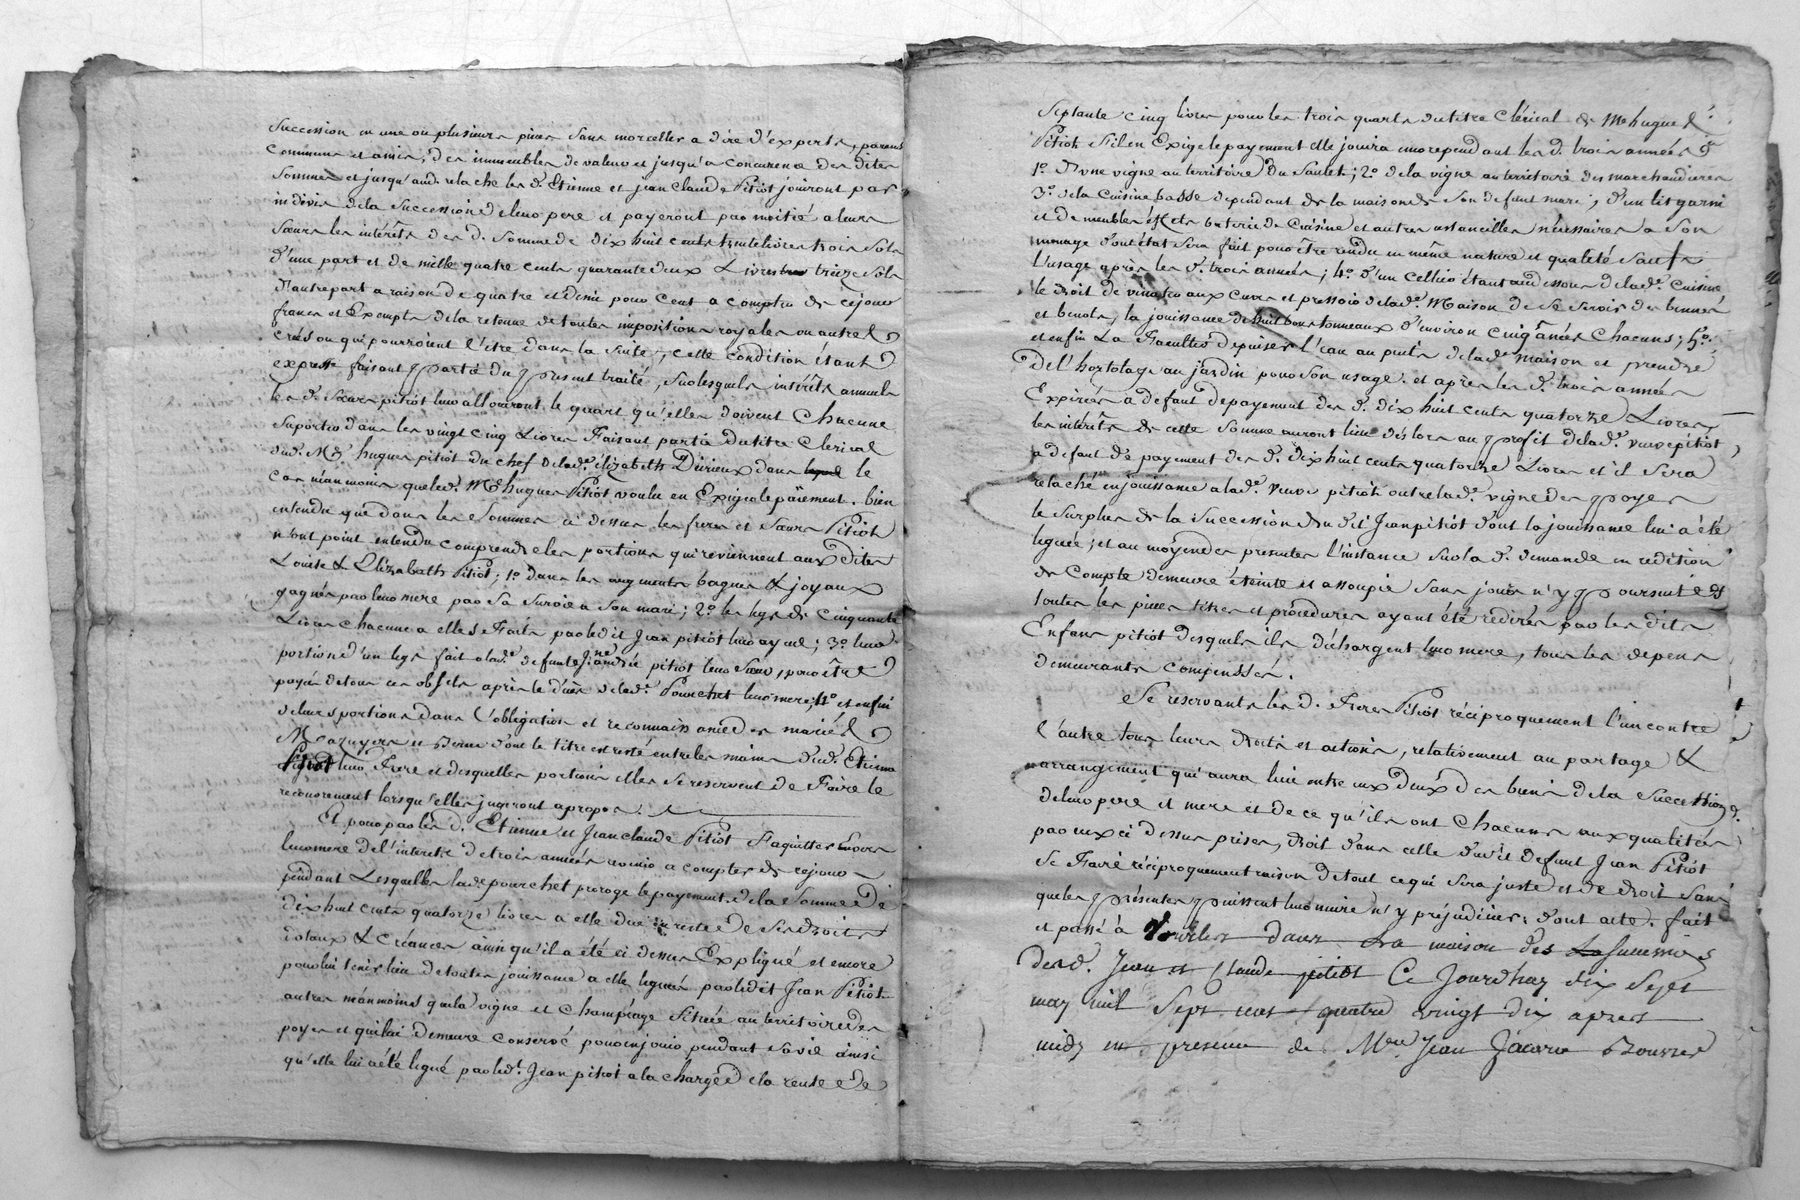 Succession en une ou plusieurs pieces sans morceller a dire d'experts, parens
communs et amis, des immeubles de valeur et jusqu'a concurrence des dites
sommes et jusqu'aud. relache les d. Etienne et jean Claude Pitiot jouiront par
indivis de la succession de leur pere et payeront par moitié a leurs
sœurs les intérêts des d. somme de dix huit cents trente livres trois sols
d'une part et de mille quatre cents quarante deux Livres treize sols
d'autre part a raison de quatre et demi pour cent a compter de ce jour
francs et Exempts de la retenue de toutes impositions royales ou autres
créés ou qui pourroient l'être dans la suite, cette condition étant
expresse faisant partie du present traité, sur lesquels intérêts annuels
les d. sœurs pitiot leur alloueront le quart qu'elles doivent Chacune
suporter dans les vingt cinq Livres Faisant partie du titre Clerical
dud. Me hugues pitiot du chef de lad. élizabeth Dérieux dans le
cas néanmoins que led. Me hugues Pitiot voulu en Exiger le païement. bien
entendu que dans les sommes ci dessus les freres et sœurs Pitiot
n'ont point entendu comprendre les portions qui reviennent aux dites
Louise & Elizabeth Pitiot; 1o dans les augments bagues & joyaux
gagnés par leur mere par sa survie a son mari; 2o les legs de Cinquante
Livres chacune a elles Faits par ledit Jean pitiot leur ayeul; 3o leur
portion d'un legs fait a lad. defunte Jne andrée pitiot leur sœur, pour être
payés de tous ces objets après le décès de lad. Pourchet leur mere; 4o et enfin
de leurs portions dans l'obligation et reconnaissance des mariés
et Berne dont le titre est resté entre les mains dud. Etienne
Pitiot leur Frere et desquelles portions elles se reservent de Faire le
recouvrement lorsqu'elles jugeront apropos.
Et pour par les d. Etienne et Jean claude Pitiot s'aquitter envers
leur mere de l'interêt de trois années a compter de ce jour
pendant Lesquelles lade pourchet proroge le payement de la somme de
dix huit cents quatorze livres a elle due en reste de ses droits
dotaux & créances ainsi qu'il a été ci dessus Expliqué et encore
pour lui tenir lieu de toutes jouissance a elle leguées par ledit Jean Pitiot
autres néanmoins que la vigne et Champéage située au territoire des
poyes et qui lui demeure conservé pour en jouir pendant sa vie ainsi
qu'elle lui a été légué par led. Jean pitiot a la charge de la rente de
Septante cinq livres pour les trois quarts du titre Clérical de Me hugues
Pitiot s'il en Exige le payement elle jouira cependant les d. trois années
1o d'une vigne au territoire du Saulet; 2o de la vigne au territoire des marchandieres
3o de la Cuisine basse dependant de la maison de son defunt mari, d'un lit garni
et de meubles effets baterie de Cuisine et autres ustancilles nécessaires a son
menage dont état sera fait pour être rendu en même nature et qualité sauf
l'usage après les d. trois années; 4o d'un cellier étant au dessous de lad. Cuisine
le droit de vinatier aux cuves et pressoir de lad. Maison de se servir des bennes
et benots, la jouissance de huit bons tonneaux d'environ cinq ânées chacuns; 5o
et enfin La Faculté de puiser l'eau au puits de lad. maison et prendre
de l'hortolage au jardin pour son usage. et après les d. trois années
Expirées a defaut de payement des d. dix huit cents quatorze Livres
les intérêts de cette somme auront lieu dès lors au profit de lad. veuve pitiot
a defaut de payement des d. dix huit cents quatorze Livres et il sera
relaché en jouissance a lad. veuve pitiot outre lad. vigne des poyes
le surplus de la succession du dit Jean pitiot dont la jouissance lui a été
leguée; et au moyen des presentes l'instance sur la d. demande en redition
de Compte demeure éteinte et assoupie sans jamais n'y poursuite
toutes les pieces titres et procédures ayant été retirés par les dits
Enfans pitiot desquels ils déchargent leur mere, tous les depens
demeurants compensés.
Se reservants les d. Freres Pitiot réciproquement l'un contre
l'autre tous leurs droits et actions, relativement au partage &
arrangement qui aura lieu entre eux deux des biens de la succession
de leur pere et mere et de ce qu'ils ont Chacuns aux qualités
par eux ci dessus prises, droit dans celle dudit defunt Jean Pitiot
se Faire réciproquement raison de tout ce qui sera juste et de droit sans
que les présentes puissent leur nuire n'y préjudicier; dont acte. fait
et passé à dans La maison des
desd. Jean et Claude pitiot Ce Jourdhuy dix Sept
may mil Sept cens quatre vingt dix apres
midy en presence de Mre Jean